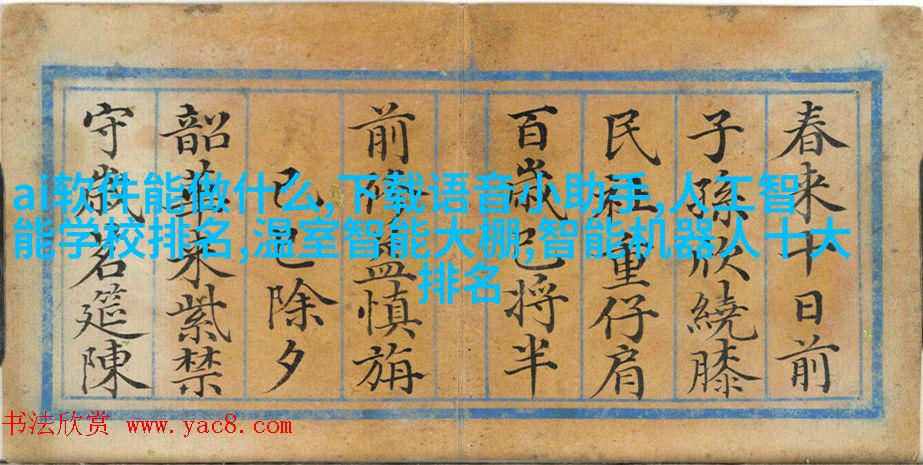 春来十日前
子孫欣繞膝
民社重仔肩
百歲已将半
前脩益慎旃
己巳除夕
韶華来紫禁
守歲茗筵陳
ai软件能做什么,下载语音小助手,人工智
能学校排名,温室智能大棚,智能机器人十大
排名
书法欣赏 www.yac8.com